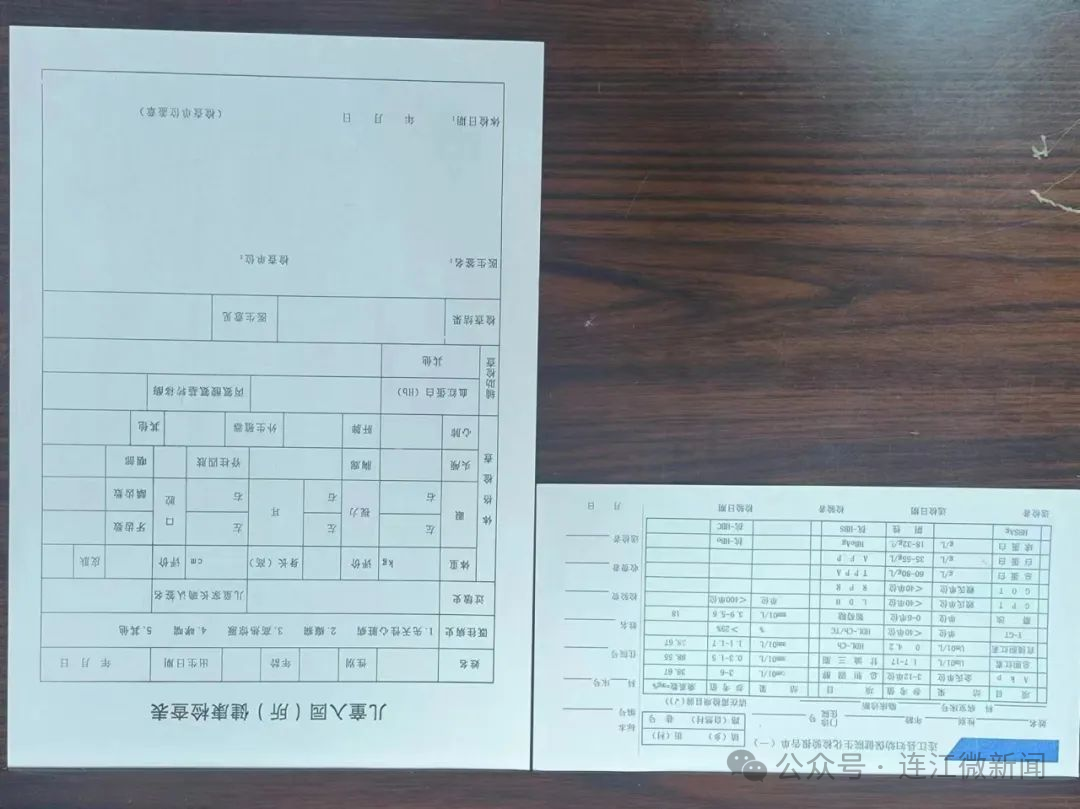 儿童入园（所）健康检查表
姓名 性别 年龄 出生日期 年 月 日
既往病史 1.先天性心脏病 2.癫痫 3.高热惊厥 4.哮喘 5.其他
过敏史 儿童家长确认签名
体格检查
体重 kg 评价 身长（高） cm 评价 皮肤
眼 左 右 视力 左 右 耳 左 右 口腔 牙齿数 龋齿数
头颅 胸廓 脊柱四肢 咽部
心肺 肝脾 外生殖器 其他
辅助检查
血红蛋白（Hb） 丙氨酸氨基转移酶
其他
检查结果 医生意见
医生签名： 检查单位：
体检日期： 年 月 日 （检查单位盖章）
连江县妇幼保健院生化检验报告单（一）
姓名 性别 年龄 门诊 住院 号
科 病室床号 临床诊断
镇（乡） 街（村）
路（自然村） 巷 号
请在需检项目前（√）
项目 结果 参考值 项目 结果 参考值 换素数=mg%
AKP 金氏单位 3-12单位 总胆固醇 mmol/L 3-6 38.67
总胆红素 Umol/L 1.7-17 甘油三酯 mmol/L 0.3-1.5 88.55
直接胆红素 Umol/L 0-4.2 HDL-Ch mmol/L 1.1-1.7 38.67
γ-GT 单位 <40单位 HDL-Ch/TC % >25%
单位 0-6单位 葡萄糖 mmol/L 3.9-5.6 18
GPT 赖氏单位 <40单位 LDH 单位 <400单位
GOT 赖氏单位 <40单位 RPR
总蛋白 g/L 60-80g/L TPPA
白蛋白 g/L 35-55g/L AFP
球蛋白 g/L 18-32g/L HBeAg 抗-HBe
HBSAg 阴性 抗-HBS 抗-HBC
送检者 送检日期 检验者 检验日期 月 日
标本
编号
科 床号
住院号
姓名
检验费
收费者
送检者
公众号·连江微新闻